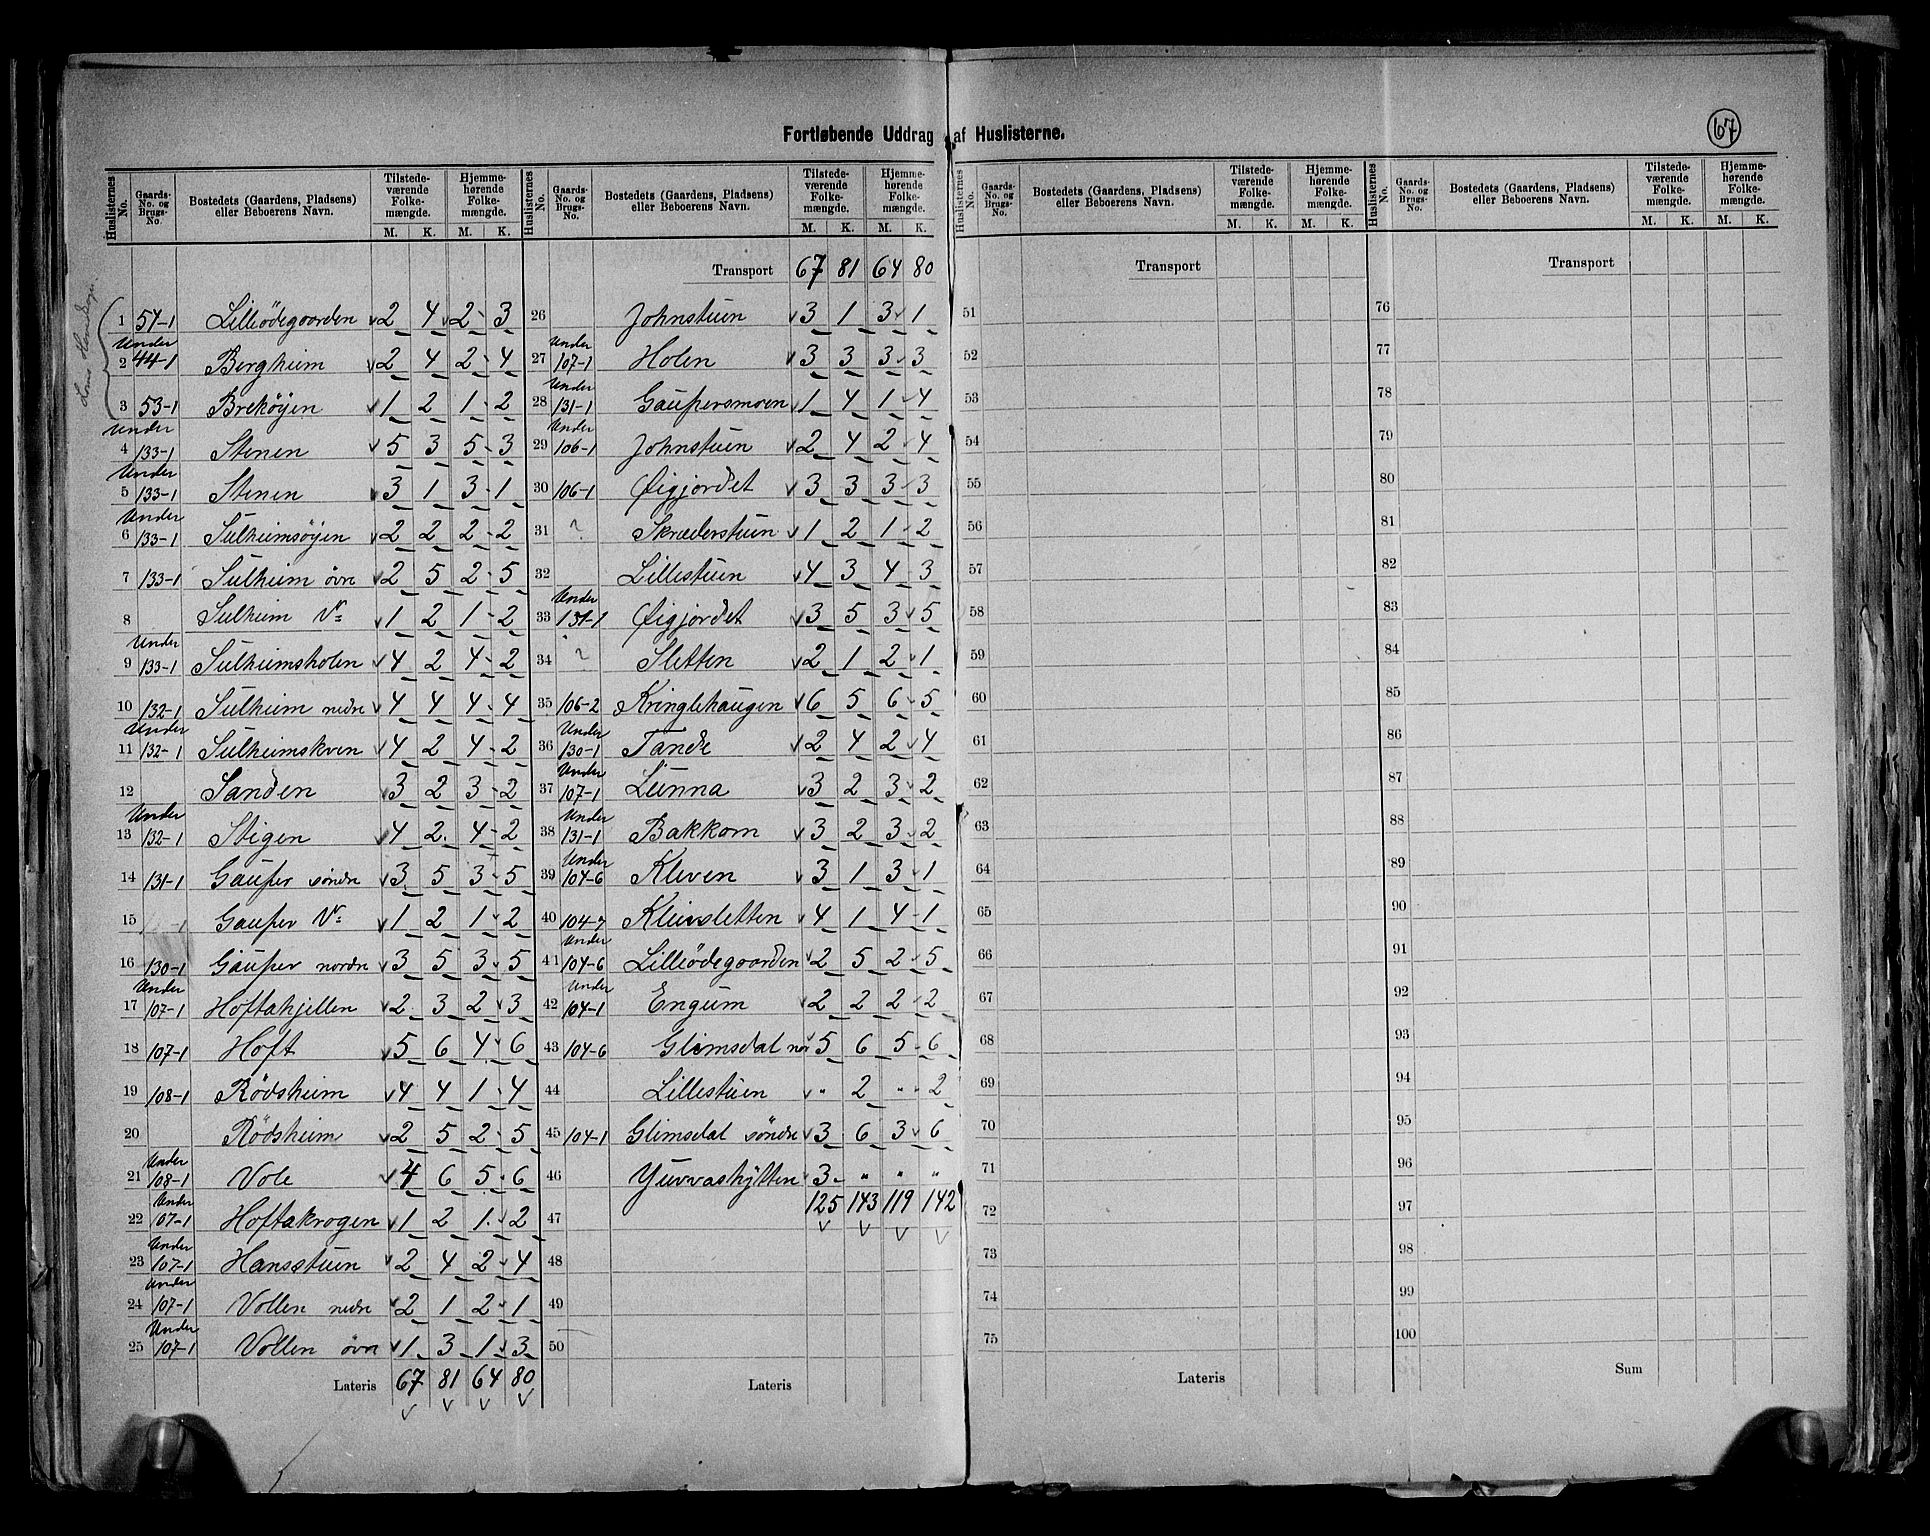 Fortløbende Uddrag af Huslisterne.
67
Huslisternes No. Gaards-No. og Brugs-No. Bostedets (Gaardens, Pladsens) eller Beboerens Navn. Tilstedeværende Folkemængde. M. K. Hjemmehørende Folkemængde. M. K.
1 57-1 Lilleödegaarden 2 4 2 3
2 Under 44-1 Bergheim 2 4 2 4
3 53-1 Brekøyen 1 2 1 2
4 Under 133-1 Stenen 5 3 5 3
5 Under 133-1 Stenen 3 1 3 1
6 Under 133-1 Sulheimsöyen 2 2 2 2
7 133-1 Sulheim övre 2 5 2 5
8 Sulheim Vr 1 2 1 2
9 Under 133-1 Sulheimsholen 4 2 4 2
10 132-1 Sulheim nedre 4 4 4 4
11 Under 132-1 Sulheimskven 4 2 4 2
12 Sanden 3 2 3 2
13 Under 132-1 Stigen 4 2 4 2
14 131-1 Gauper söndre 3 5 3 5
15 Gauper Vr 1 2 1 2
16 130-1 Gauper nordre 3 5 3 5
17 Under 107-1 Hoftakjellen 2 3 2 3
18 107-1 Hoft 5 6 4 6
19 108-1 Rödsheim 4 4 1 4
20 Rödsheim 2 5 2 5
21 Under 108-1 Vole 4 6 5 6
22 Under 107-1 Hoftakrogen 1 2 1 2
23 Under 107-1 Hansstuen 2 4 2 4
24 Under 107-1 Vollen nedre 2 1 2 1
25 Under 107-1 Vollen övre 1 3 1 3
Lateris 67 81 64 80
Huslisternes No. Gaards-No. og Brugs-No. Bostedets (Gaardens, Pladsens) eller Beboerens Navn. Tilstedeværende Folkemængde. M. K. Hjemmehørende Folkemængde. M. K.
Transport 67 81 64 80
26 Johnstuen 3 1 3 1
27 Under 107-1 Holen 3 3 3 3
28 Under 131-1 Gaupersmoen 1 4 1 4
29 Under 106-1 Johnstuen 2 4 2 4
30 106-1 Øigjordet 3 3 3 3
31 ? Skræderstuen 1 2 1 2
32 Lillestuen 4 3 4 3
33 Under 131-1 Øigjordet 3 5 3 5
34 ? Sletten 2 1 2 1
35 106-2 Kringlehaugen 6 5 6 5
36 Under 130-1 Tande 2 4 2 4
37 Under 107-1 Lunna 3 2 3 2
38 Under 131-1 Bakkom 3 2 3 2
39 Under 104-6 Kleven 3 1 3 1
40 104-7 Kleivsletten 4 1 4 1
41 Under 104-6 Lilleödegaarden 2 5 2 5
42 Under 104-1 Engum 2 2 2 2
43 104-6 Glimsdal nor 5 6 5 6
44 Lillestuen " 2 " 2
45 104-1 Glimsdal söndre 3 6 3 6
46 Yuvvashytten 3 " " "
47 125 143 119 142
48
49
50
Lateris
Huslisternes No. Gaards-No. og Brugs-No. Bostedets (Gaardens, Pladsens) eller Beboerens Navn. Tilstedeværende Folkemængde. M. K. Hjemmehørende Folkemængde. M. K.
Transport
51
52
53
54
55
56
57
58
59
60
61
62
63
64
65
66
67
68
69
70
71
72
73
74
75
Lateris
Huslisternes No. Gaards-No. og Brugs-No. Bostedets (Gaardens, Pladsens) eller Beboerens Navn. Tilstedeværende Folkemængde. M. K. Hjemmehørende Folkemængde. M. K.
Transport
76
77
78
79
80
81
82
83
84
85
86
87
88
89
90
91
92
93
94
95
96
97
98
99
100
Sum